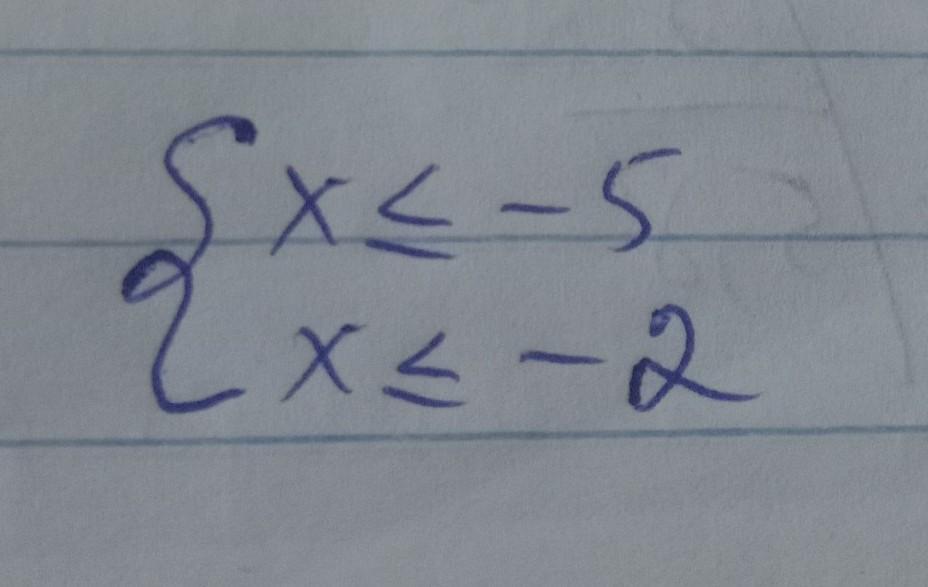 x ≤ -5
x ≤ -2